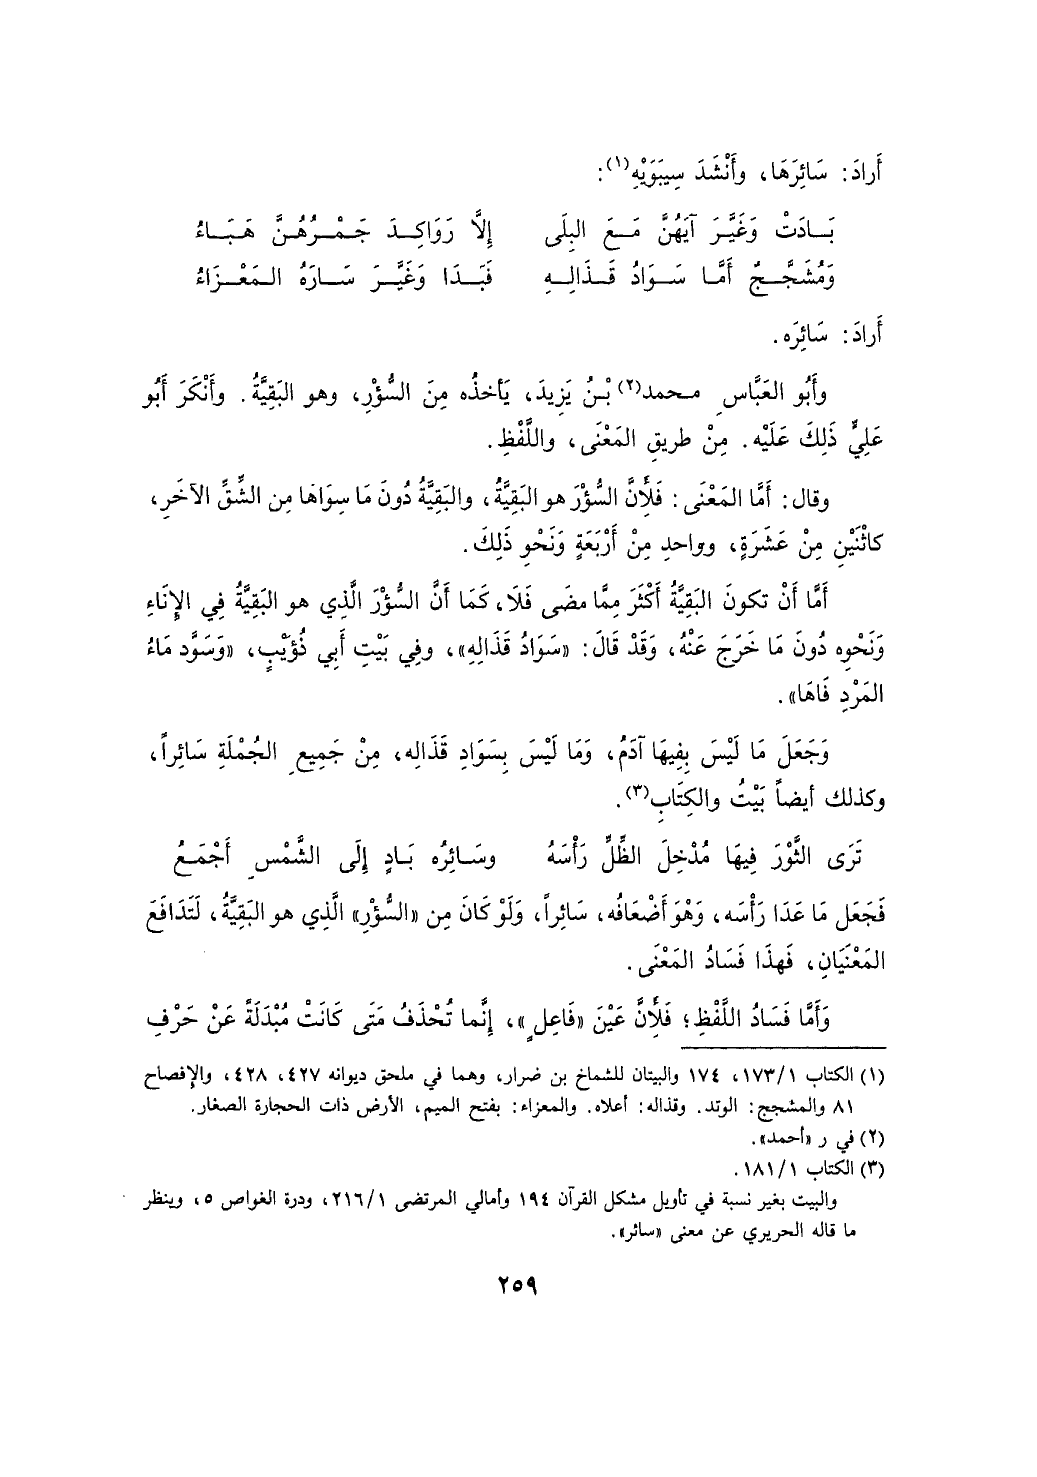 أَرادَ: سَائِرَهَا، وأَنْشَدَ سِيبَوَيْهِ(١):
بَــادَتْ وَغَيَّـرَ آيَهُنَّ مَـعَ البِلَى إِلاَّ رَوَاكِـدَ جَمْـرُهُـنَّ هَبَـاءُ
وَمُشَجَّـجٌ أَمَّـا سَـوَادُ قَـذَالِـهِ فَبَـدَا وَغَيَّـرَ سَـارَهُ المَعْـزَاءُ
أَرادَ: سَائِرَه.
وأَبُو العَبَّاسِ محمد(٢) بْنُ يَزِيدَ، يَأخذُه مِنَ السُّؤْرِ، وهو البَقِيَّةُ. وأَنْكَرَ أَبُو
عَلِيٍّ ذَلِكَ عَلَيْه. مِنْ طريقِ المَعْنَى، واللَّفْظِ.
وقال: أَمَّا المَعْنَى: فَلِأَنَّ السُّؤْرَ هو البَقِيَّةُ، والبَقِيَّةُ دُونَ مَا سِوَاهَا مِن الشِّقِّ الآخَرِ،
كاثْنَيْنِ مِنْ عَشَرَةٍ، وواحدٍ مِنْ أَرْبَعَةٍ وَنَحْوِ ذَلِكَ.
أَمَّا أَنْ تكونَ البَقِيَّةُ أَكْثَرَ مِمَّا مضَى فَلَا، كَمَا أَنَّ السُّؤْرَ الَّذِي هو البَقِيَّةُ فِي الإِنَاءِ
وَنَحْوِه دُونَ مَا خَرَجَ عَنْهُ، وَقَدْ قَالَ: «سَوَادُ قَذَالِهِ»، وفِي بَيْتِ أَبِي ذُؤَيْبٍ، «وَسَوَّد مَاءُ
المَرْدِ فَاهَا».
وَجَعَلَ مَا لَيْسَ بِفِيهَا آدَمُ، وَمَا لَيْسَ بِسَوَادِ قَذَالِه، مِنْ جَمِيعِ الجُمْلَةِ سَائِراً،
وكذلك أيضاً بَيْتُ والكِتَابِ(٣).
تَرَى الثَّوْرَ فِيهَا مُدْخِلَ الظِّلِّ رَأْسَهُ وسَـائِرُه بَـادٍ إِلَى الشَّمْسِ أَجْمَـعُ
فَجَعَل مَا عَدَا رَأْسَه، وَهْوَ أَضْعَافُه، سَائِراً، وَلَوْ كَانَ مِن «السُّؤْرِ» الَّذِي هو البَقِيَّةُ، لَتَدَافَعَ
المَعْنَيَانِ، فَهذَا فَسَادُ المَعْنَى.
وَأَمَّا فَسَادُ اللَّفْظِ؛ فَلِأَنَّ عَيْنَ «فَاعِلٍ»، إِنَّما تُحْذَفُ مَتَى كَانَتْ مُبْدَلَةً عَنْ حَرْفِ
(١) الكتاب ١/ ١٧٣، ١٧٤ والبيتان للشماخ بن ضرار، وهما في ملحق ديوانه ٤٢٧، ٤٢٨، والإفصاح
٨١ والمشجج: الوتد. وقذاله: أعلاه. والمعزاء: بفتح الميم، الأرض ذات الحجارة الصغار.
(٢) في ر «أحمد».
(٣) الكتاب ١/ ١٨١.
والبيت بغير نسبة في تأويل مشكل القرآن ١٩٤ وأمالي المرتضى ١/ ٢١٦، ودرة الغواص ٥، وينظر
ما قاله الحريري عن معنى «سائر».
٢٥٩